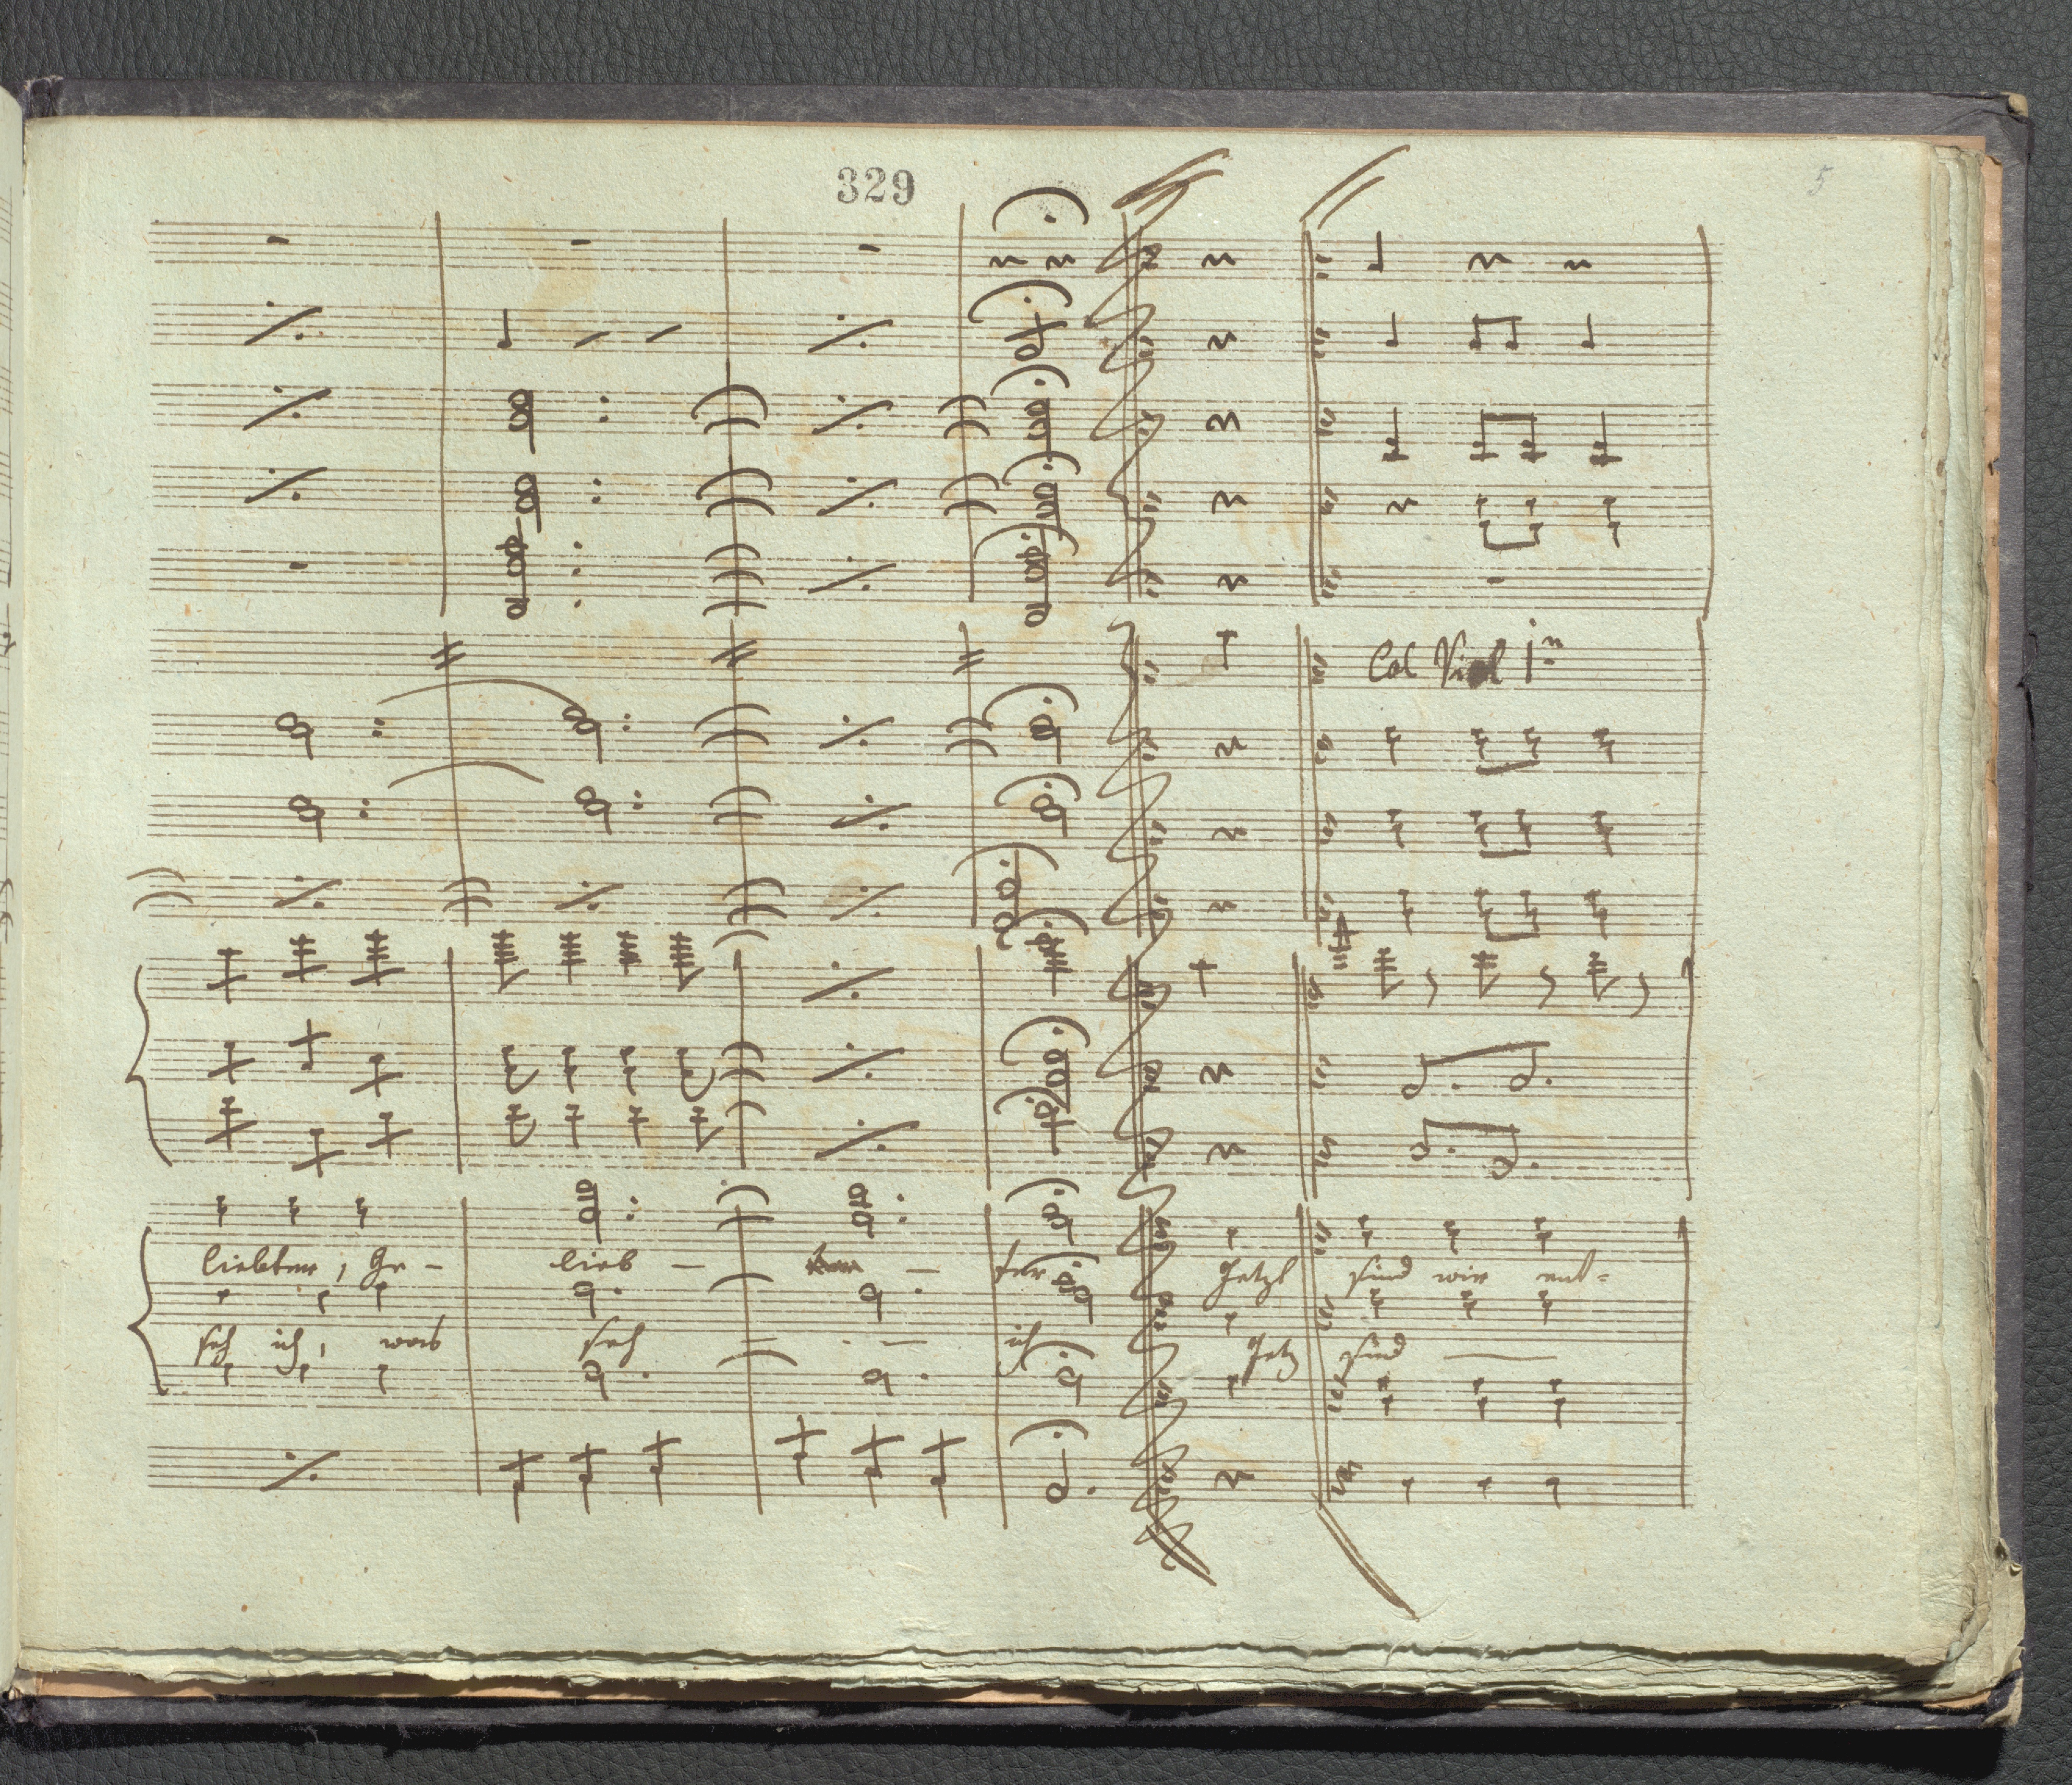 329
5
Col Viol 1mo
liebten, Ge - lieb - - ter Jetzt sind wir ent=
seh ich, was seh - - ich Jetz sind